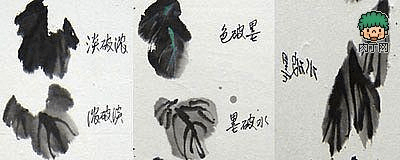 淡破浓
浓破淡
色破墨
墨破水
墨破水
肉丁网